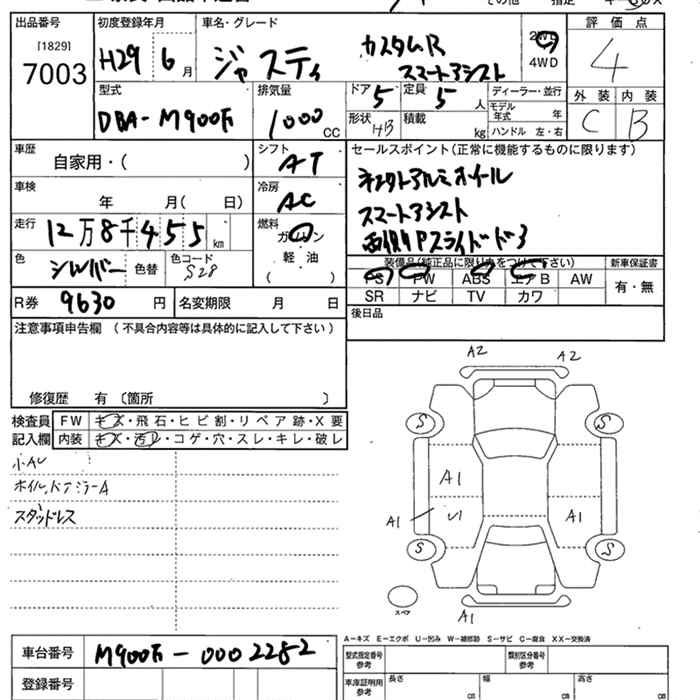 その他 指定
出品番号 初度登録年月 車名・グレード 評価点
[1829]
7003 H29 6月 ジャスティ カスタムR スマートアシスト 2WD 4WD 4
型式 排気量 ドア 定員 ディーラー・並行 外装 内装
DBA-M900F 1000 CC 5 5 人 モデル年式 年 C B
形状 HB 積載 kg ハンドル 左・右
車歴 シフト セールスポイント(正常に機能するものに限ります)
自家用・( ) AT
車検 年 月( 日) 冷房 AC
スマートアシスト
走行 12万8千455km 燃料 ガソリン
軽油
( )
両側Pスライドドア
色 シルバー 色替 色コード S28
装備品(純正品に限り丸をつけて下さい) 新車保証書
PS PW ABS エアB AW 有・無
SR ナビ TV カワ
R券 9630 円 名変期限 月 日
後日品
注意事項申告欄 (不具合内容等は具体的に記入して下さい)
修復歴 有 〔箇所 〕
検査員 FW キズ・飛石・ヒビ割・リペア跡・X要
記入欄 内装 キズ・汚レ・コゲ・穴・スレ・キレ・破レ
小AU
ホイル,ドアミラーA
スタッドレス
A2 A2
S S
A1
A1 U1 A1
S S
スペア
A1
A-キズ E-エクボ U-凹み W-補修跡 S-サビ C-腐食 XX-交換済
車台番号 M900F-0002282
型式指定番号 参考 類別区分番号 参考
登録番号
車庫証明用 参考 長さ cm 幅 cm 高さ cm